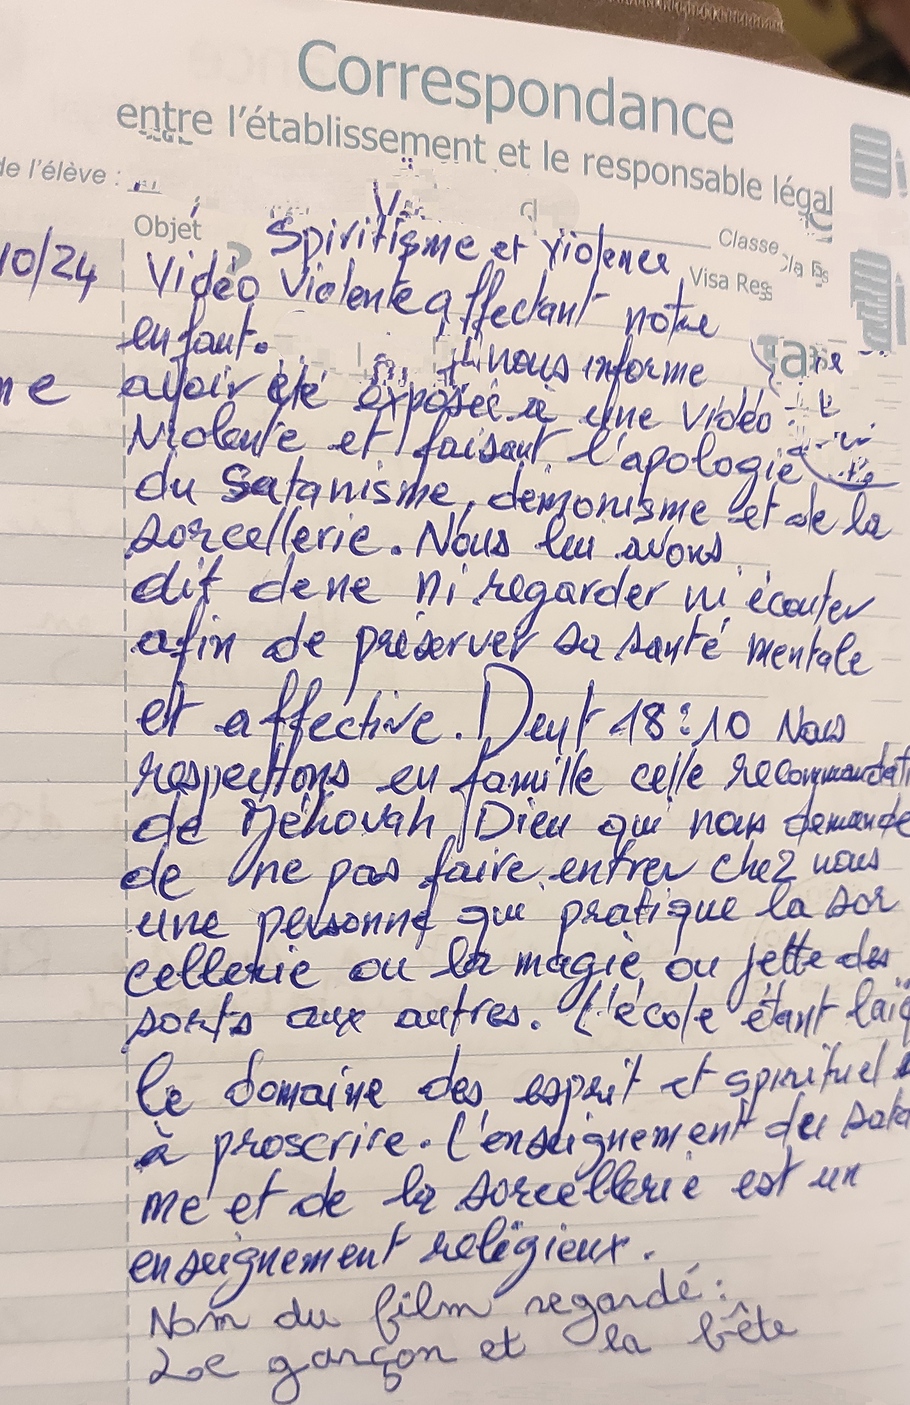 Correspondance
entre l'établissement et le responsable légal
de l'élève :
Objet
Classe
Spiritisme et violence
Visa Res
10/24
Vidéo Violente affectant notre
enfant.
nous informe
avoir été exposée à une vidéo
Violente et faisant l'apologie
du Satanisme, démonisme et de la
sorcellerie. Nous lui avons
dit de ne ni regarder ni écouter
afin de préserver sa santé mentale
et affective. Deut 18:10 Nous
respectons en famille celle recommandati
de Jéhovah Dieu qui nous demande
de ne pas faire entrer chez nous
une personne qui pratique la sor
cellerie ou la magie ou jette des
sorts aux autres. L'école étant laïq
le domaine des esprit et spirituel
à proscrire. L'enseignement du sata
me et de la sorcellerie est un
enseignement religieux.
Nom du film regardé :
Le garçon et la bête